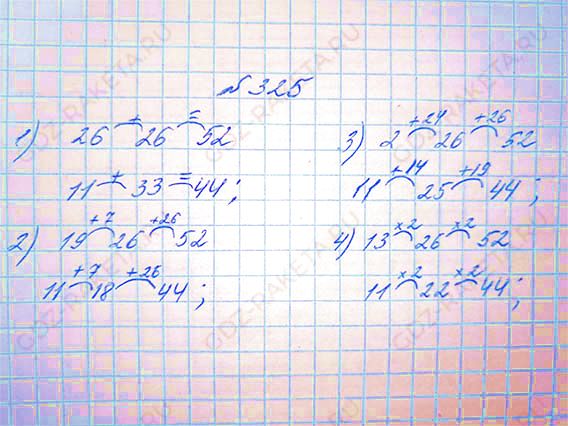 № 325
1) 26 + 26 = 52
11 + 33 = 44;
2) 19 +7 26 +26 52
11 +7 18 +26 44;
3) 2 +24 26 +26 52
11 +14 25 +19 44;
4) 13 ×2 26 ×2 52
11 ×2 22 ×2 44;
GDZ-RAKETA.RU